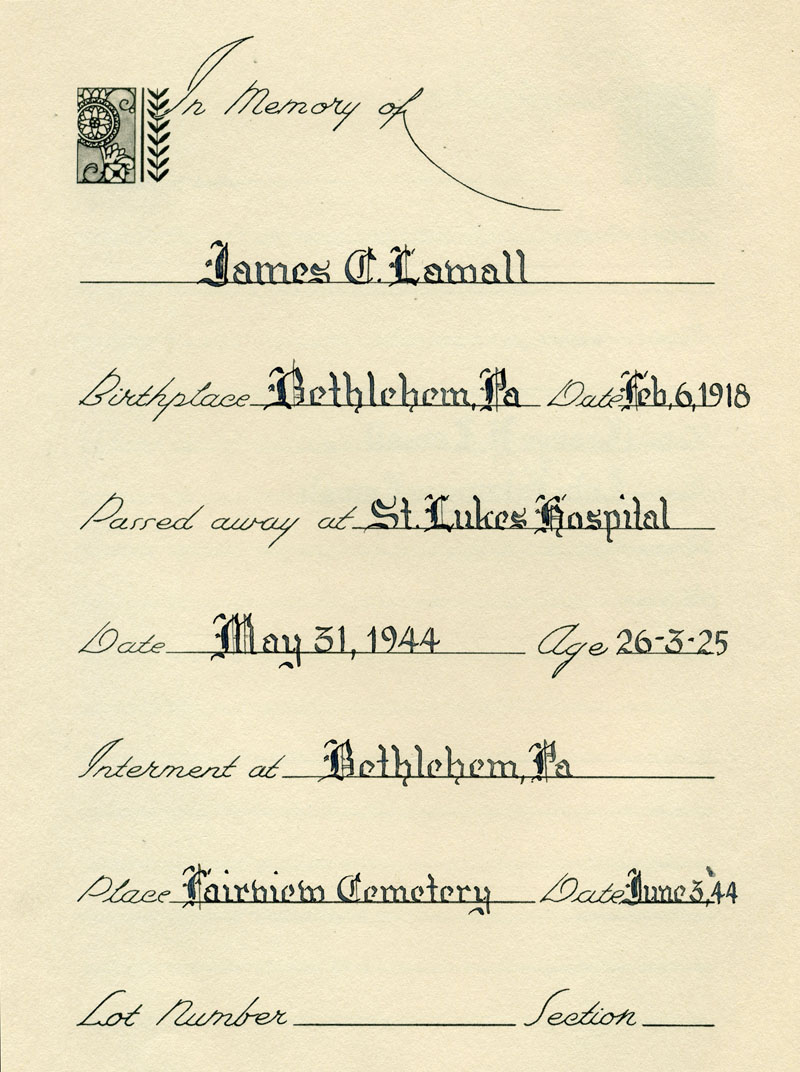 In Memory of
James C. Lawall
Birthplace Bethlehem, Pa Date Feb, 6, 1918
Passed away at St. Lukes Hospital
Date May 31, 1944 Age 26-3-25
Interment at Bethlehem, Pa
Place Fairview Cemetery Date June 3, '44
Lot Number Section